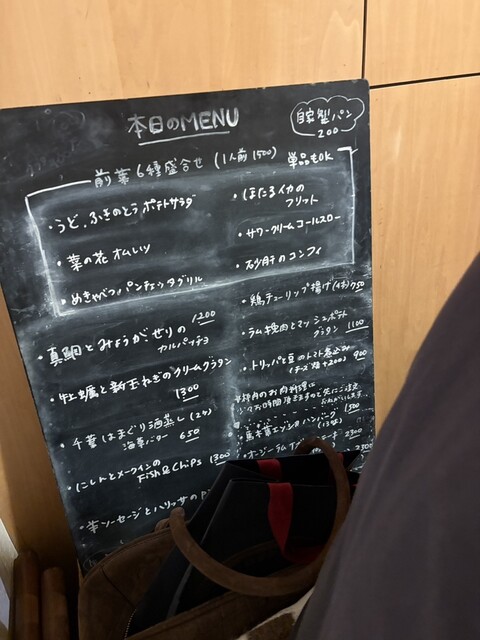 本日のMENU
自家製パン
200
前菜6種盛合せ (1人前1500) 単品もOK
・うど、ふきのとう ポテトサラダ
・菜の花 オムレツ
・めキャベツ パンチェッタ グリル
・ほたるイカの
フリット
・サワークリーム コールスロー
・砂肝のコンフィ
・真鯛とみょうが、せりの
カルパッチョ
1200
・牡蠣と新玉ねぎのクリームグラタン
1300
・千葉はまぐり酒蒸し (2ヶ)
海藻バター 650
・にしんとメークインの
Fish & Chips 1300
ソーセージとハリッサの
・鶏チューリップ揚げ (4ヶ) 750
・ラム挽肉とマッシュポテト
グラタン 1100
・トリッパと豆のトマト煮込み
(チーズ焼+200) 900
お時間頂きますので先にご注文
お願いします
1500
2300